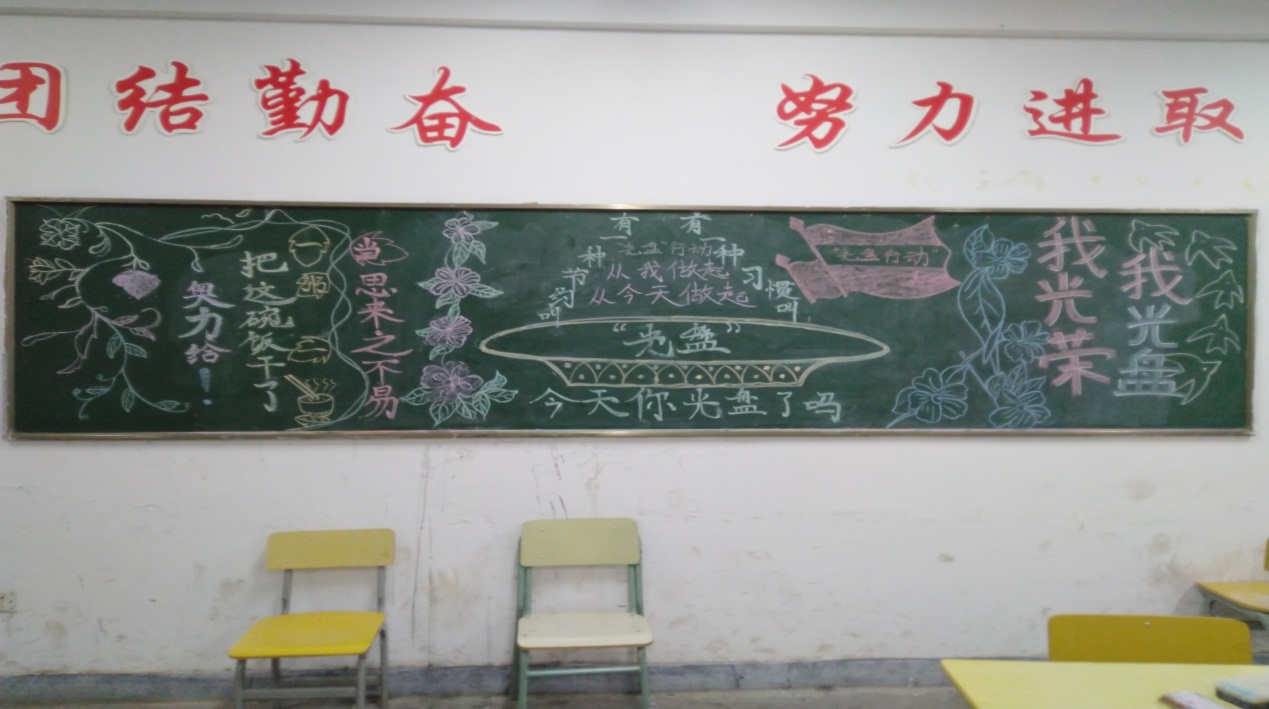 团结勤奋
努力进取
把这碗饭干了
奥力给！
粥
当思来之不易
有一种节约叫
有一种习惯叫
"光盘"行动
从我做起
从今天做起
"光盘"
今天你光盘了吗
"光盘行动"
我光盘
我光荣